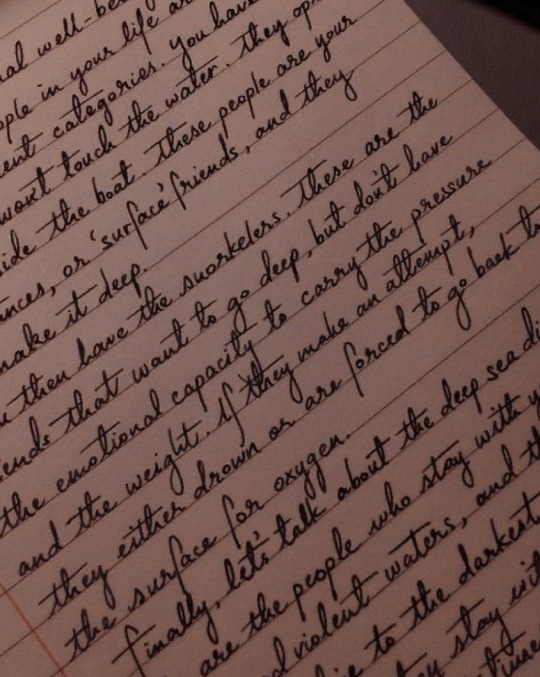 nal well-be
ople in your life a
ent categories. You have
won't touch the water. They op
ide the boat. These people are your
nces, or 'surface' friends, and they
make it deep.
u then have the snorkelers. These are the
iends that want to go deep, but don't have
the emotional capacity to carry the pressure
and the weight. If they make an attempt,
they either drown or are forced to go back to
the surface for oxygen.
Finally, let's talk about the deep sea di
are the people who stay with y
d violent waters, and th
to the darkest
ey stay wit